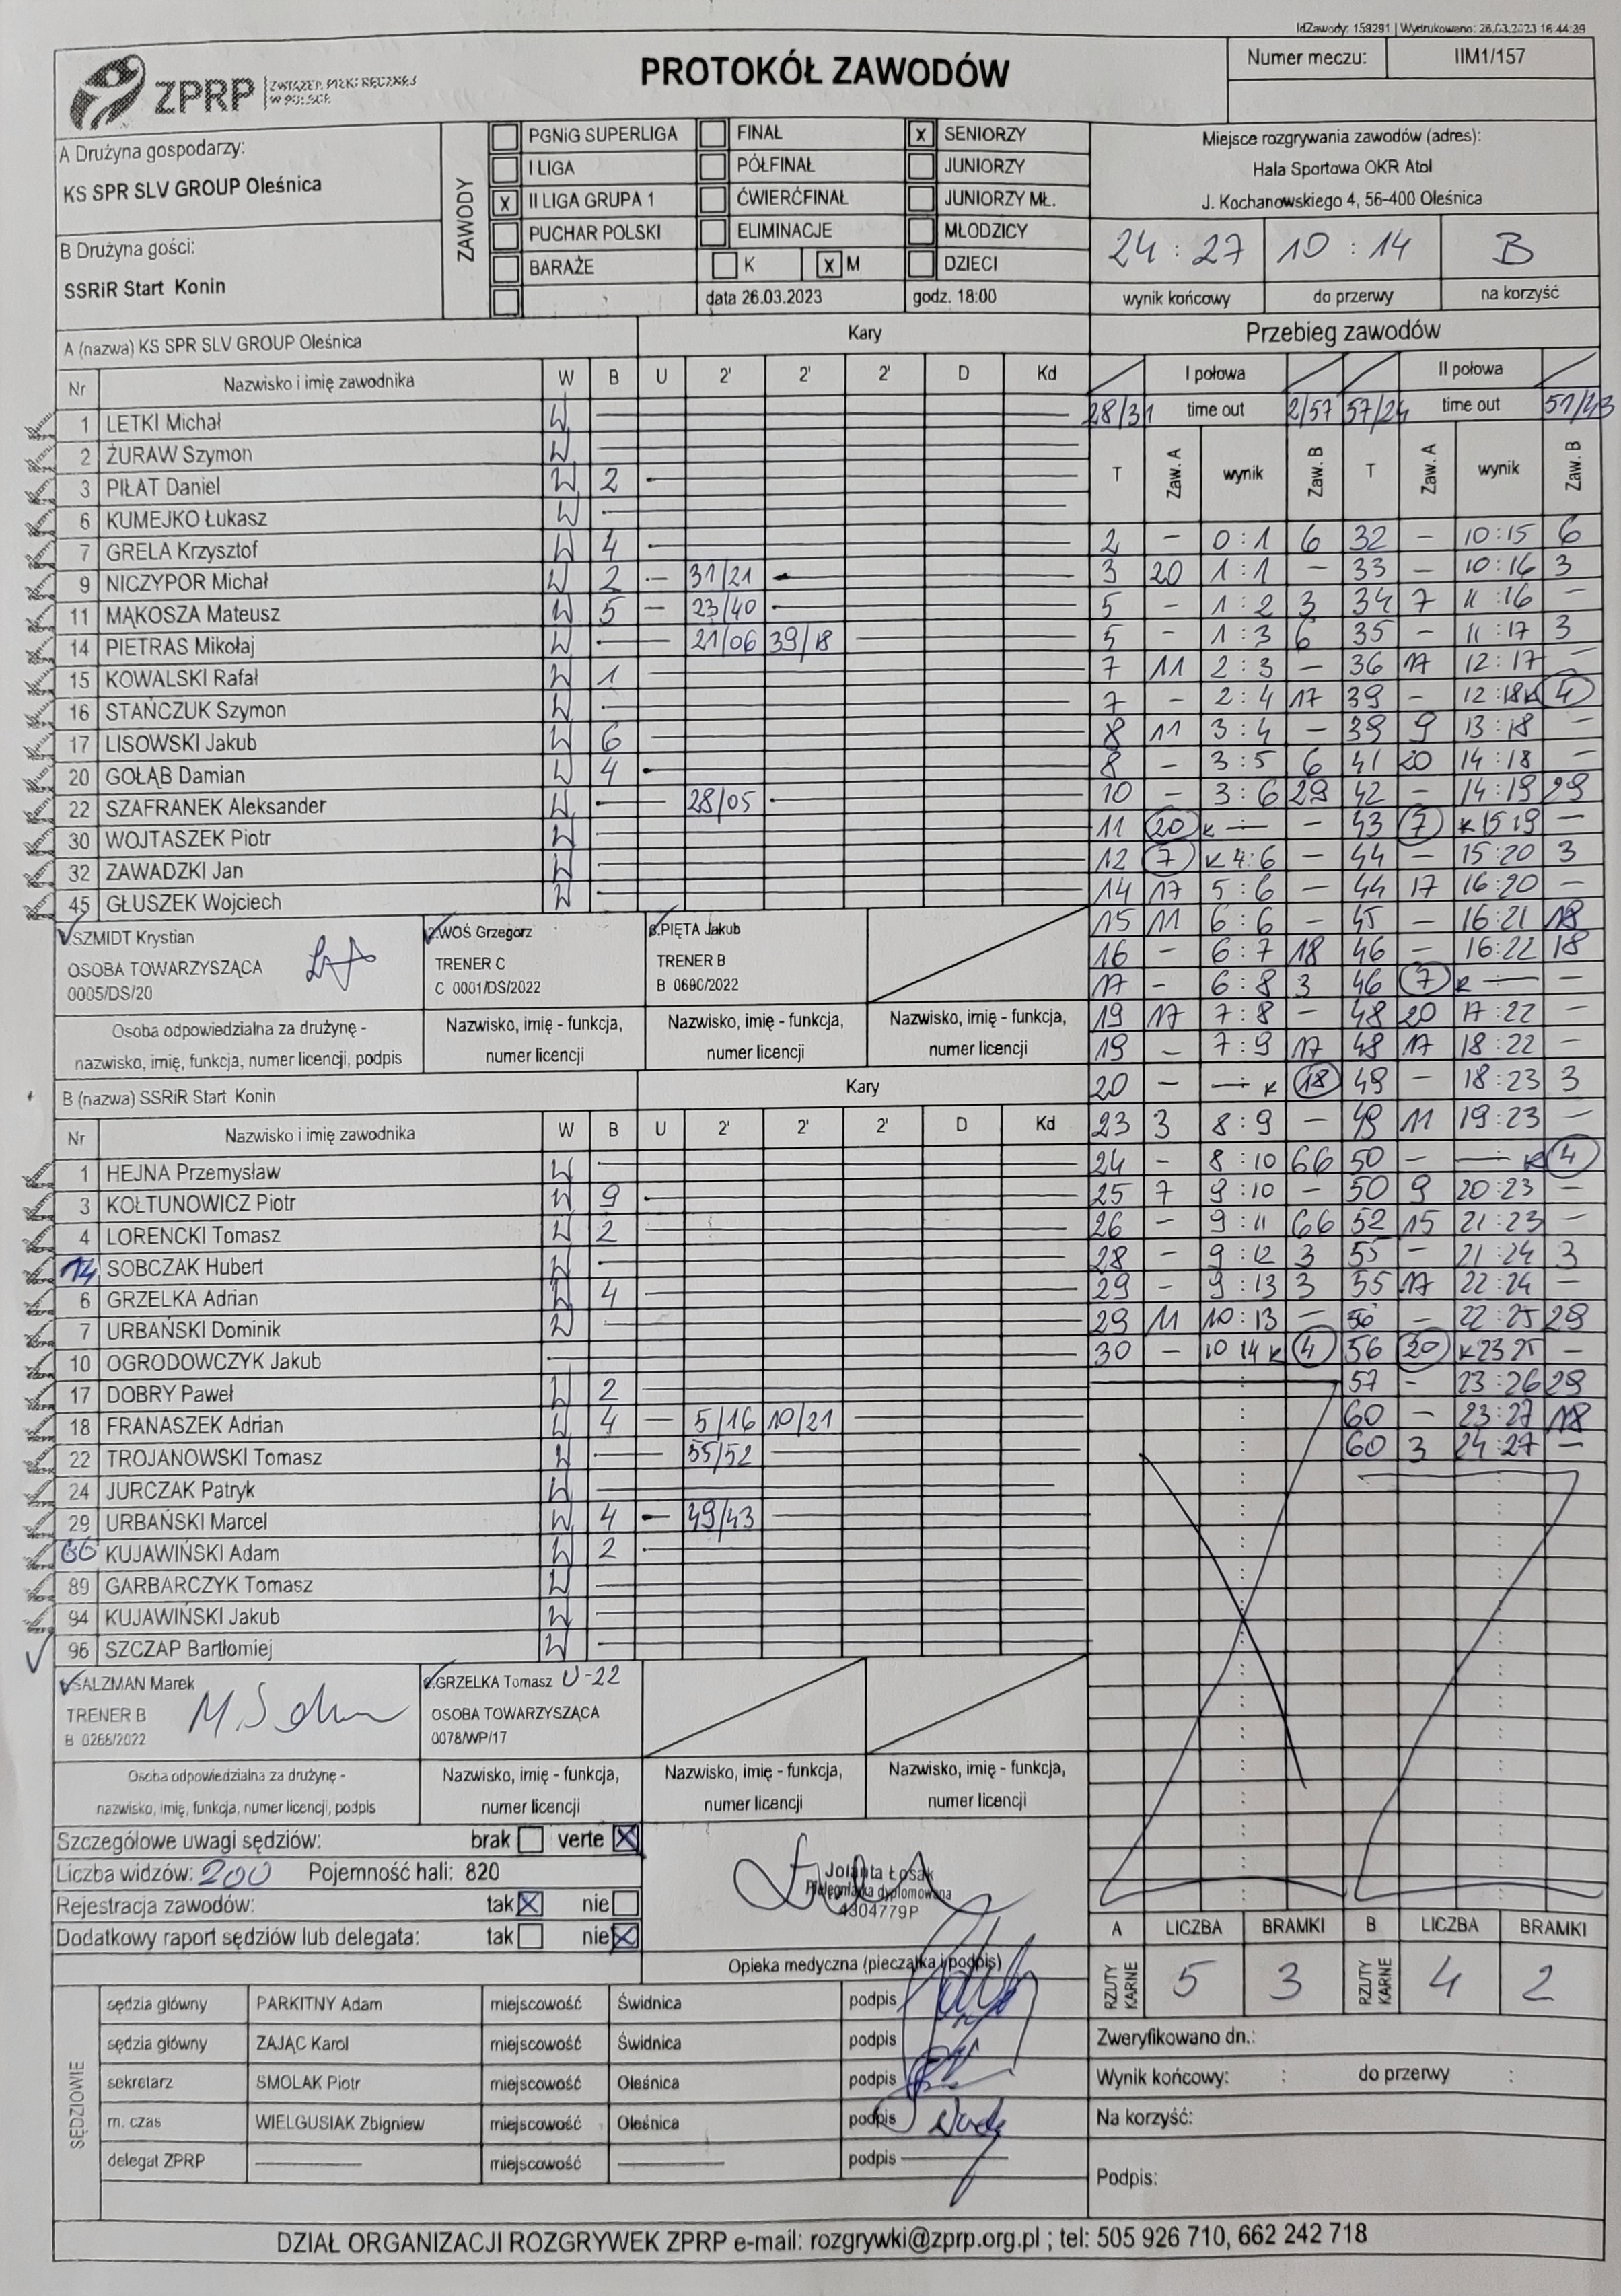 IdZawody: 159291 | Wydrukowano: 26.03.2023 16:44:39
ZPRP ZWIĄZEK PIŁKI RĘCZNEJ W POLSCE
PROTOKÓŁ ZAWODÓW
Numer meczu: IIM1/157
A Drużyna gospodarzy:
KS SPR SLV GROUP Oleśnica
B Drużyna gości:
SSRiR Start Konin
ZAWODY
PGNiG SUPERLIGA FINAŁ X SENIORZY
I LIGA PÓŁFINAŁ JUNIORZY
X II LIGA GRUPA 1 ĆWIERĆFINAŁ JUNIORZY MŁ.
PUCHAR POLSKI ELIMINACJE MŁODZICY
BARAŻE K X M DZIECI
data 26.03.2023 godz. 18:00
Miejsce rozgrywania zawodów (adres):
Hala Sportowa OKR Atol
J. Kochanowskiego 4, 56-400 Oleśnica
24 : 27 10 : 14 B
wynik końcowy do przerwy na korzyść
A (nazwa) KS SPR SLV GROUP Oleśnica Kary
Nr Nazwisko i imię zawodnika W B U 2' 2' 2' D Kd
1 LETKI Michał W
2 ŻURAW Szymon W
3 PIŁAT Daniel W 2
6 KUMEJKO Łukasz W
7 GRELA Krzysztof W 4
9 NICZYPOR Michał W 2 31/21
11 MĄKOSZA Mateusz W 5 23/40
14 PIETRAS Mikołaj W 21/06 39/18
15 KOWALSKI Rafał W 1
16 STAŃCZUK Szymon W
17 LISOWSKI Jakub W 6
20 GOŁĄB Damian W 4
22 SZAFRANEK Aleksander W 28/05
30 WOJTASZEK Piotr W
32 ZAWADZKI Jan W
45 GŁUSZEK Wojciech W
SZMIDT Krystian
OSOBA TOWARZYSZĄCA
0005/DS/20
WOŚ Grzegorz
TRENER C
C 0001/DS/2022
PIĘTA Jakub
TRENER B
B 0690/2022
Osoba odpowiedzialna za drużynę -
nazwisko, imię, funkcja, numer licencji, podpis
Nazwisko, imię - funkcja,
numer licencji
Nazwisko, imię - funkcja,
numer licencji
Nazwisko, imię - funkcja,
numer licencji
B (nazwa) SSRiR Start Konin Kary
Nr Nazwisko i imię zawodnika W B U 2' 2' 2' D Kd
1 HEJNA Przemysław W
3 KOŁTUNOWICZ Piotr W 9
4 LORENCKI Tomasz W 2
14 SOBCZAK Hubert W
6 GRZELKA Adrian W 4
7 URBAŃSKI Dominik W
10 OGRODOWCZYK Jakub
17 DOBRY Paweł W 2
18 FRANASZEK Adrian W 4 5/16 10/21
22 TROJANOWSKI Tomasz W 55/52
24 JURCZAK Patryk W
29 URBAŃSKI Marcel W 4 49/43
66 KUJAWIŃSKI Adam W 2
89 GARBARCZYK Tomasz W
94 KUJAWIŃSKI Jakub W
96 SZCZAP Bartłomiej W
SALZMAN Marek
TRENER B
B 0266/2022
GRZELKA Tomasz U-22
OSOBA TOWARZYSZĄCA
0078/WP/17
Osoba odpowiedzialna za drużynę -
nazwisko, imię, funkcja, numer licencji, podpis
Nazwisko, imię - funkcja,
numer licencji
Nazwisko, imię - funkcja,
numer licencji
Nazwisko, imię - funkcja,
numer licencji
Przebieg zawodów
I połowa II połowa
28/31 time out 2/57 57/24 time out 51/43
T Zaw. A wynik Zaw. B T Zaw. A wynik Zaw. B
2 - 0:1 6 32 - 10:15 6
3 20 1:1 - 33 - 10:16 3
5 - 1:2 3 34 7 11:16 -
5 - 1:3 6 35 - 11:17 3
7 11 2:3 - 36 17 12:17 -
7 - 2:4 17 39 - 12:18 K 4
8 11 3:4 - 39 9 13:18 -
8 - 3:5 6 41 20 14:18 -
10 - 3:6 29 42 - 14:19 29
11 20 K - - 43 7 K 15 19 -
12 7 K 4:6 - 44 - 15:20 3
14 17 5:6 - 44 17 16:20 -
15 11 6:6 - 45 - 16:21 18
16 - 6:7 18 46 - 16:22 18
17 - 6:8 3 46 7 K -
19 17 7:8 - 48 20 17:22 -
19 - 7:9 17 48 17 18:22 -
20 - - K 18 49 - 18:23 3
23 3 8:9 - 49 11 19:23 -
24 - 8:10 66 50 - - K 4
25 7 9:10 - 50 9 20:23 -
26 - 9:11 66 52 15 21:23 -
28 - 9:12 3 55 - 21:24 3
29 - 9:13 3 55 17 22:24 -
29 11 10:13 - 56 - 22:25 29
30 - 10 14 K 4 56 20 K 23 25 -
57 - 23:26 29
60 - 23:27 18
60 3 24:27 -
Szczegółowe uwagi sędziów: brak verte X
Liczba widzów: 200 Pojemność hali: 820
Rejestracja zawodów: tak X nie
Dodatkowy raport sędziów lub delegata: tak nie X
Jolanta Łosak
Pielęgniarka dyplomowana
4304779P
Opieka medyczna (pieczątka i podpis)
A LICZBA BRAMKI B LICZBA BRAMKI
RZUTY KARNE 5 3 RZUTY KARNE 4 2
SĘDZIOWIE
sędzia główny PARKITNY Adam miejscowość Świdnica podpis
sędzia główny ZAJĄC Karol miejscowość Świdnica podpis
sekretarz SMOLAK Piotr miejscowość Oleśnica podpis
m. czas WIELGUSIAK Zbigniew miejscowość Oleśnica podpis
delegat ZPRP miejscowość podpis
Zweryfikowano dn.:
Wynik końcowy: : do przerwy :
Na korzyść:
Podpis:
DZIAŁ ORGANIZACJI ROZGRYWEK ZPRP e-mail: rozgrywki@zprp.org.pl ; tel: 505 926 710, 662 242 718